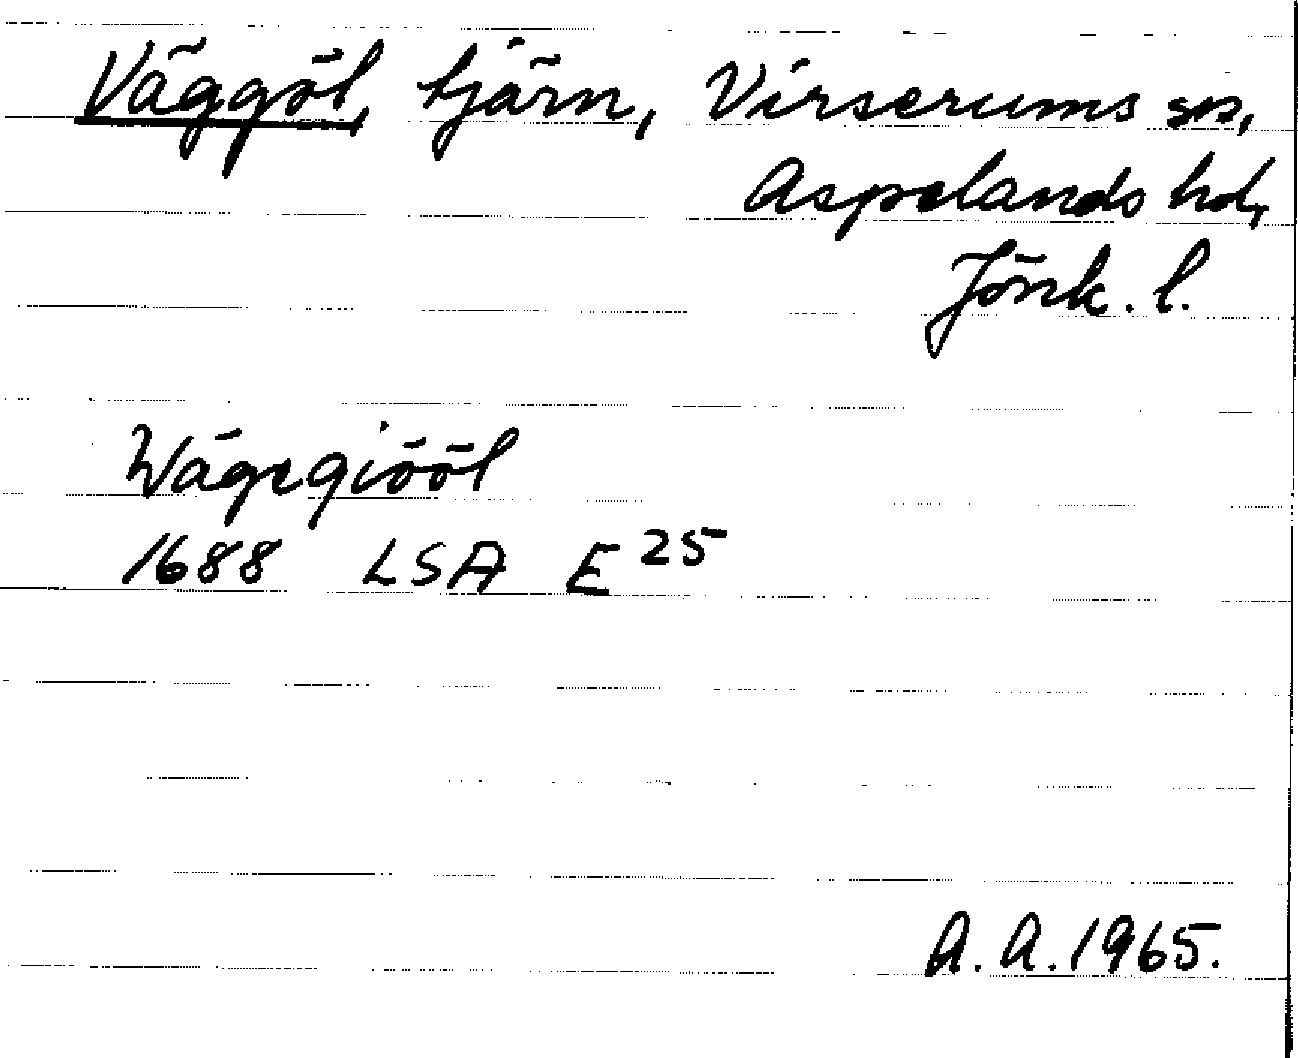 Väggöl, tjärn, Virserums sn,
Aspelands hd,
Jönk. l.
Wägegiööl
1688 LSA E 25
A. A. 1965.